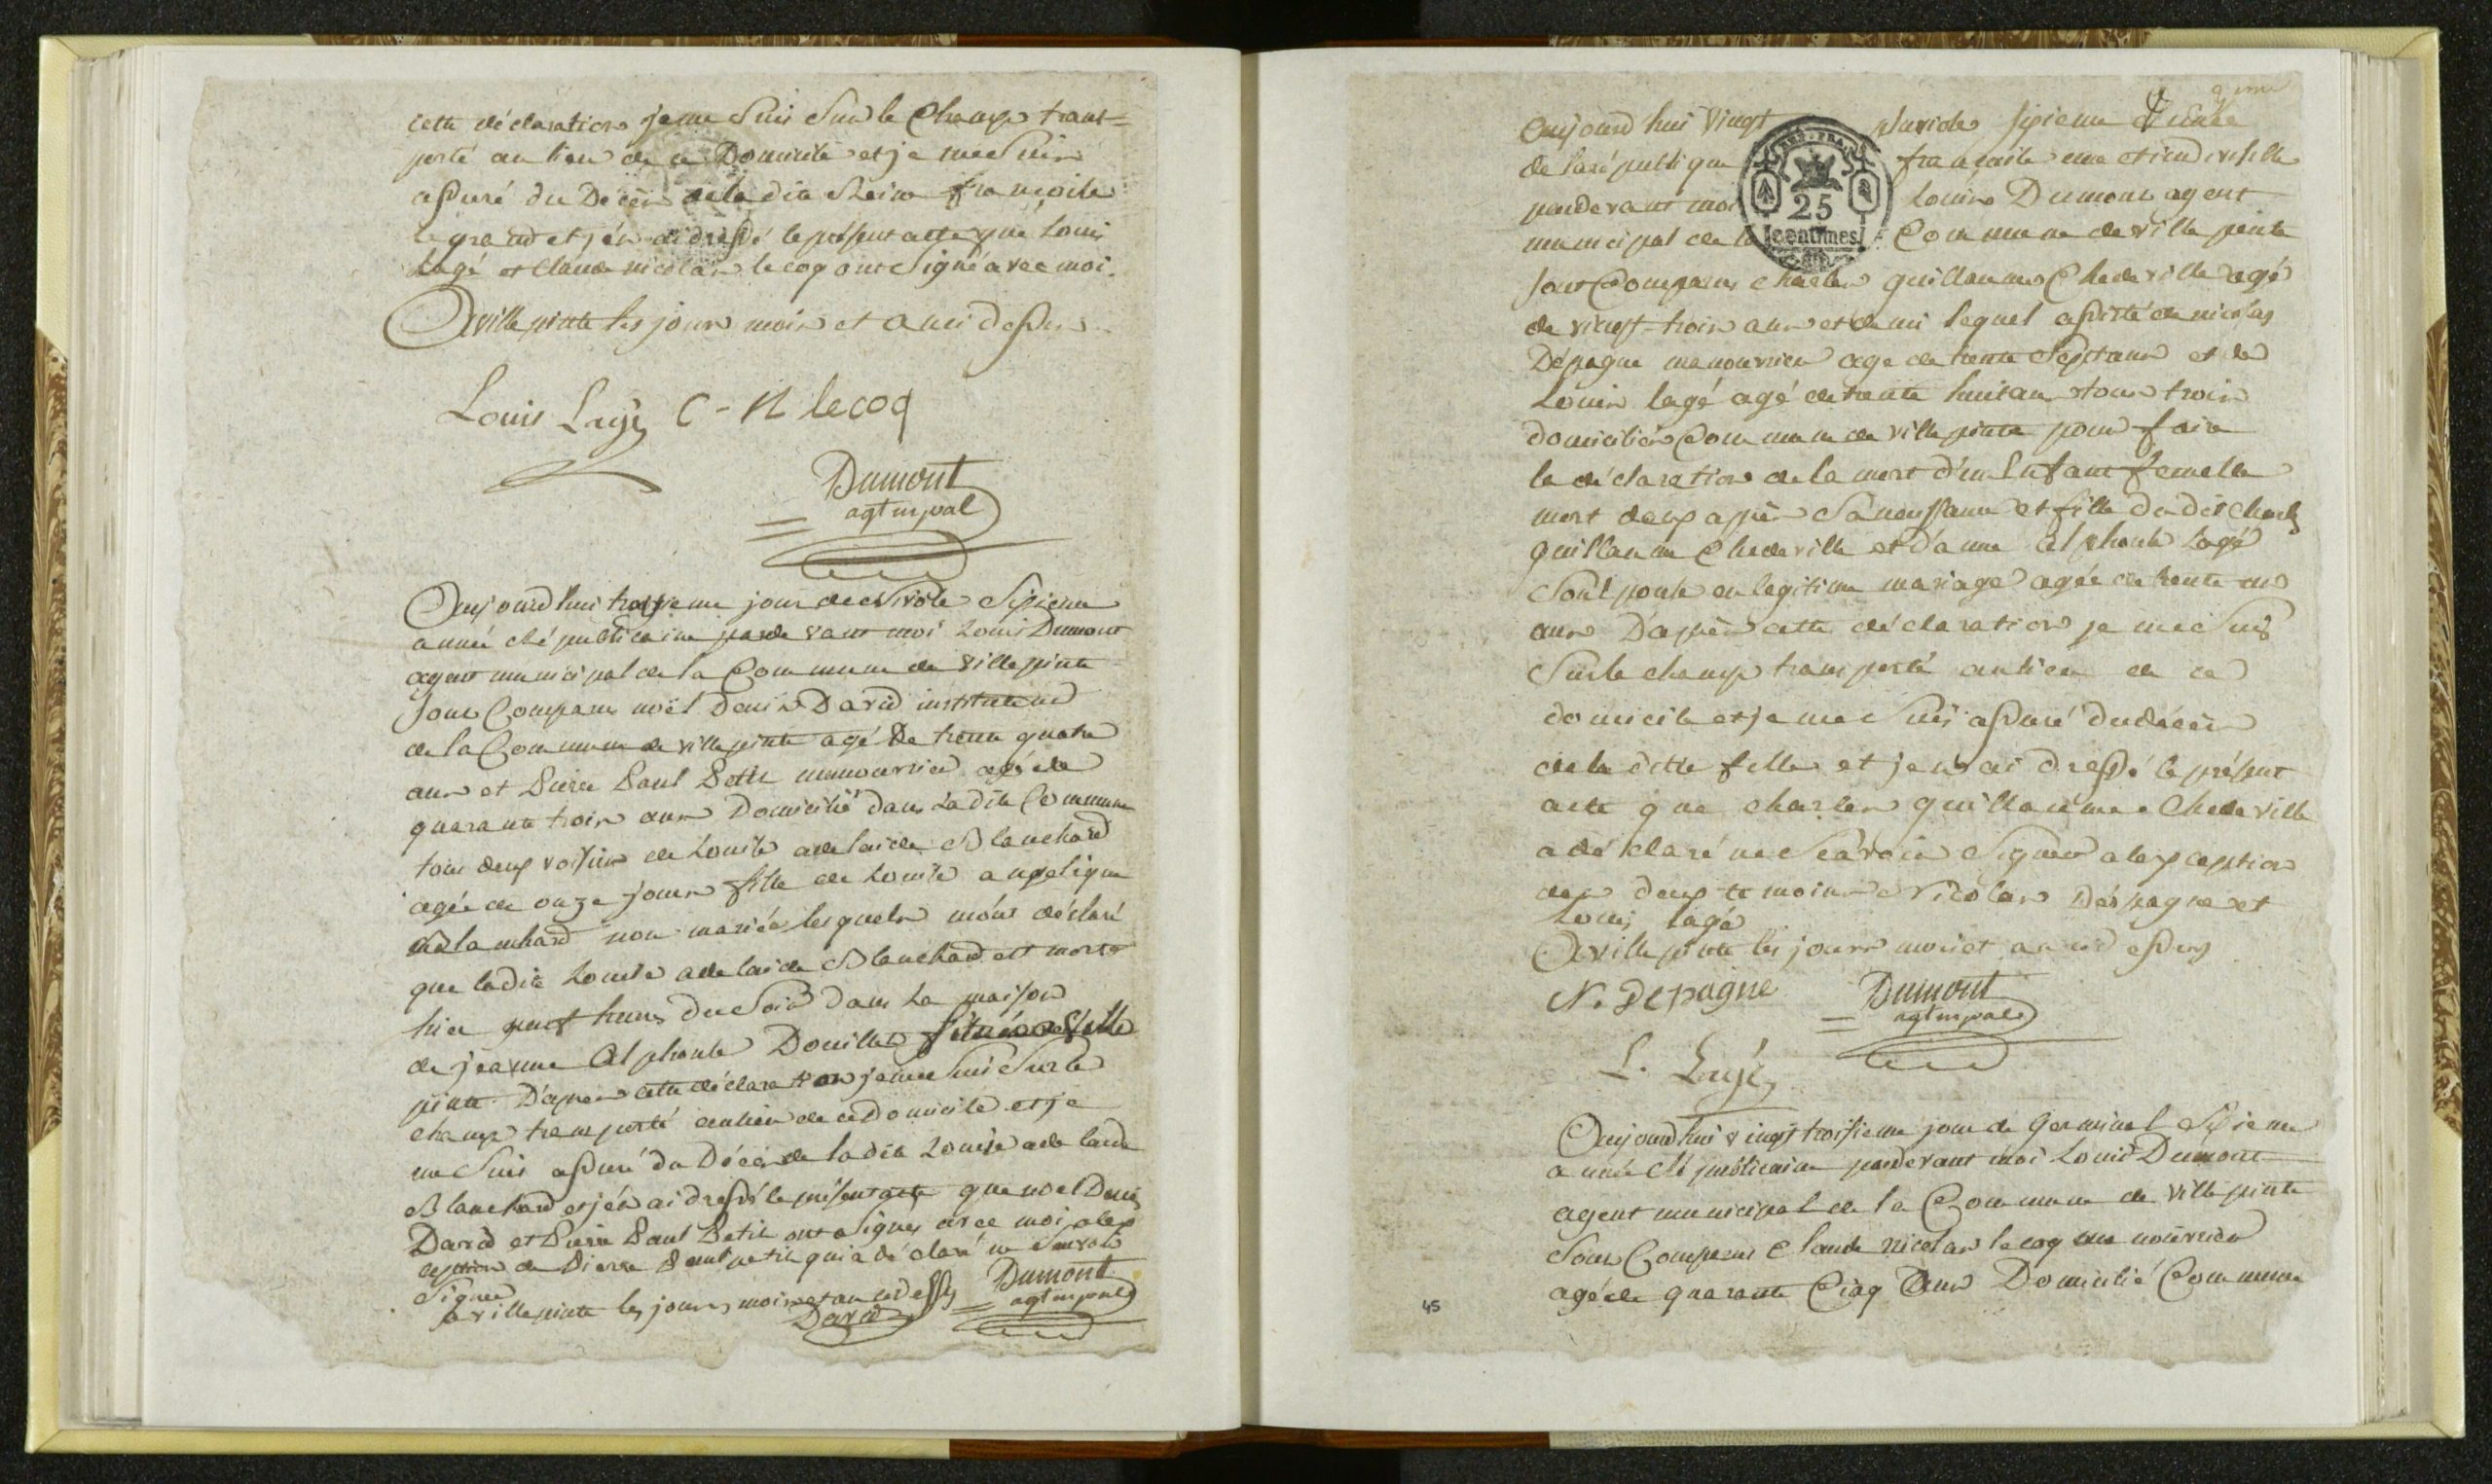 cette déclaration je me suis sur le champ trans=
porté au lieu de ce Domicile et je me suis
assuré du Décès de la dite Reine françoise
legrand et j'én ai dressé le présent acte que Louis
Lagé et Claude nicolas lecoq ont signé avec moi.
A villepinte les jours mois et an ci dessus
Louis Lagé C-N lecoq
Dumont
agt mpal
Aujourd hui treizieme jour de Nivose sixieme
année Républicaine pardevant moi Louis Dumont
agent municipal de la Commune de villepinte
sont Comparus noël Denis David instituteur
de la Commune de villepinte agé De trente quatre
ans et Pierre Paul Petit manouvrier agé de
quarante trois ans Domicilié dans Ladite Commune
tous deux voisins de Louise adelaide Blanchard
agée de onze jours fille de Louise angelique
Blanchard non mariée lesquels m'ont déclaré
que ladite Louise adelaide Blanchard est morte
hier neuf heures du Soir dans La maison
de jeanne Alphonse Douillet située a ville
pinte D'après cette déclaration je me suis Sur le
champ transporté au lieu de ce Domicile et je
me Suis assuré du Décès de ladite Louise adelaide
Blanchard et j'én ai dressé le présent acte que noel Denis
David et Pierre Paul Petit ont signés avec moi a lex
ception de Pierre Paul petit qui a déclaré ne Savoir
Signer
a villepinte les jours mois et an ci dessus Dumont
David agt mpal
Aujourd hui Vingt pluviose sixieme Année
de la république française une et indivisible
pardevant moi Louis Dumont agent
municipal de la Commune de villepinte
REP. FRA.
25
centimes
sont Comparus charles guillaume Chedeville agé
de vingt-trois ans et demi lequel assisté de nicolas
Dépagne manouvrier age de trente Sept ans et de
Louis lagé agé de trente huit ans tous trois
domiciliés Commune de villepinte pour faire
la déclaration de la mort d'un Enfant femelle
mort deux après Sa naissance et fille du dit Charles
guillaume Chedeville et d'anne alphonse Lagé
Son épouse en legitime mariage agée de trente
ans D'après cette déclaration je me suis
Sur le champ transporté au lieu de ce
domicile et je me suis assuré du décès
de la ditte fille et j'en ai dressé le présent
acte que charles guillaume Chedeville
a déclaré ne Scavoir Signer a lexception
des deux temoins Nicolas Dépagne et
Louis lagé
A villepinte les jours mois et an ci dessus
N. Depagne Dumont
agt mpal
L. Lagé
Aujourd hui vingt troisieme jour de germinal Sixieme
année Républicaine pardevant moi Louis Dumont
agent municipal de la Commune de villepinte
Sont Comparus Claude nicolas lecoq manouvrier
agé de quarante Cinq Ans Domicilié Commune
45